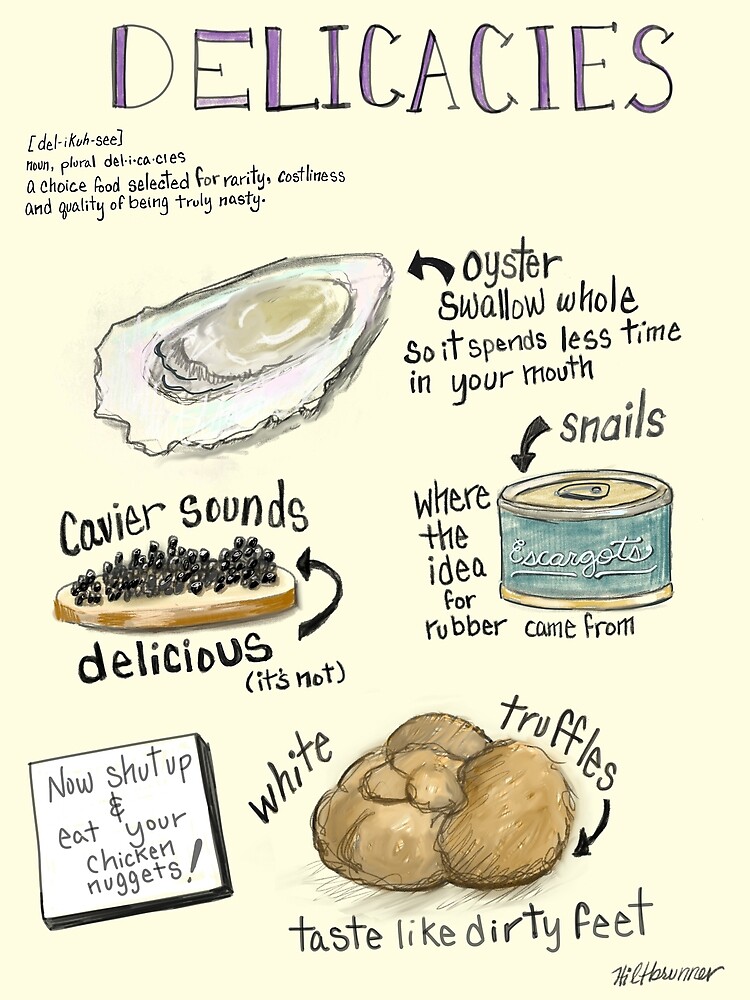 DELICACIES
[del-ikuh-see]
noun, plural del·i·ca·cies
a choice food selected for rarity, costliness
and quality of being truly nasty.
oyster
swallow whole
so it spends less time
in your mouth
snails
where
the
idea
for
rubber came from
Escargots
Cavier sounds
delicious
(it's not)
Now shut up
&
eat your
chicken
nuggets!
white
truffles
taste like dirty feet